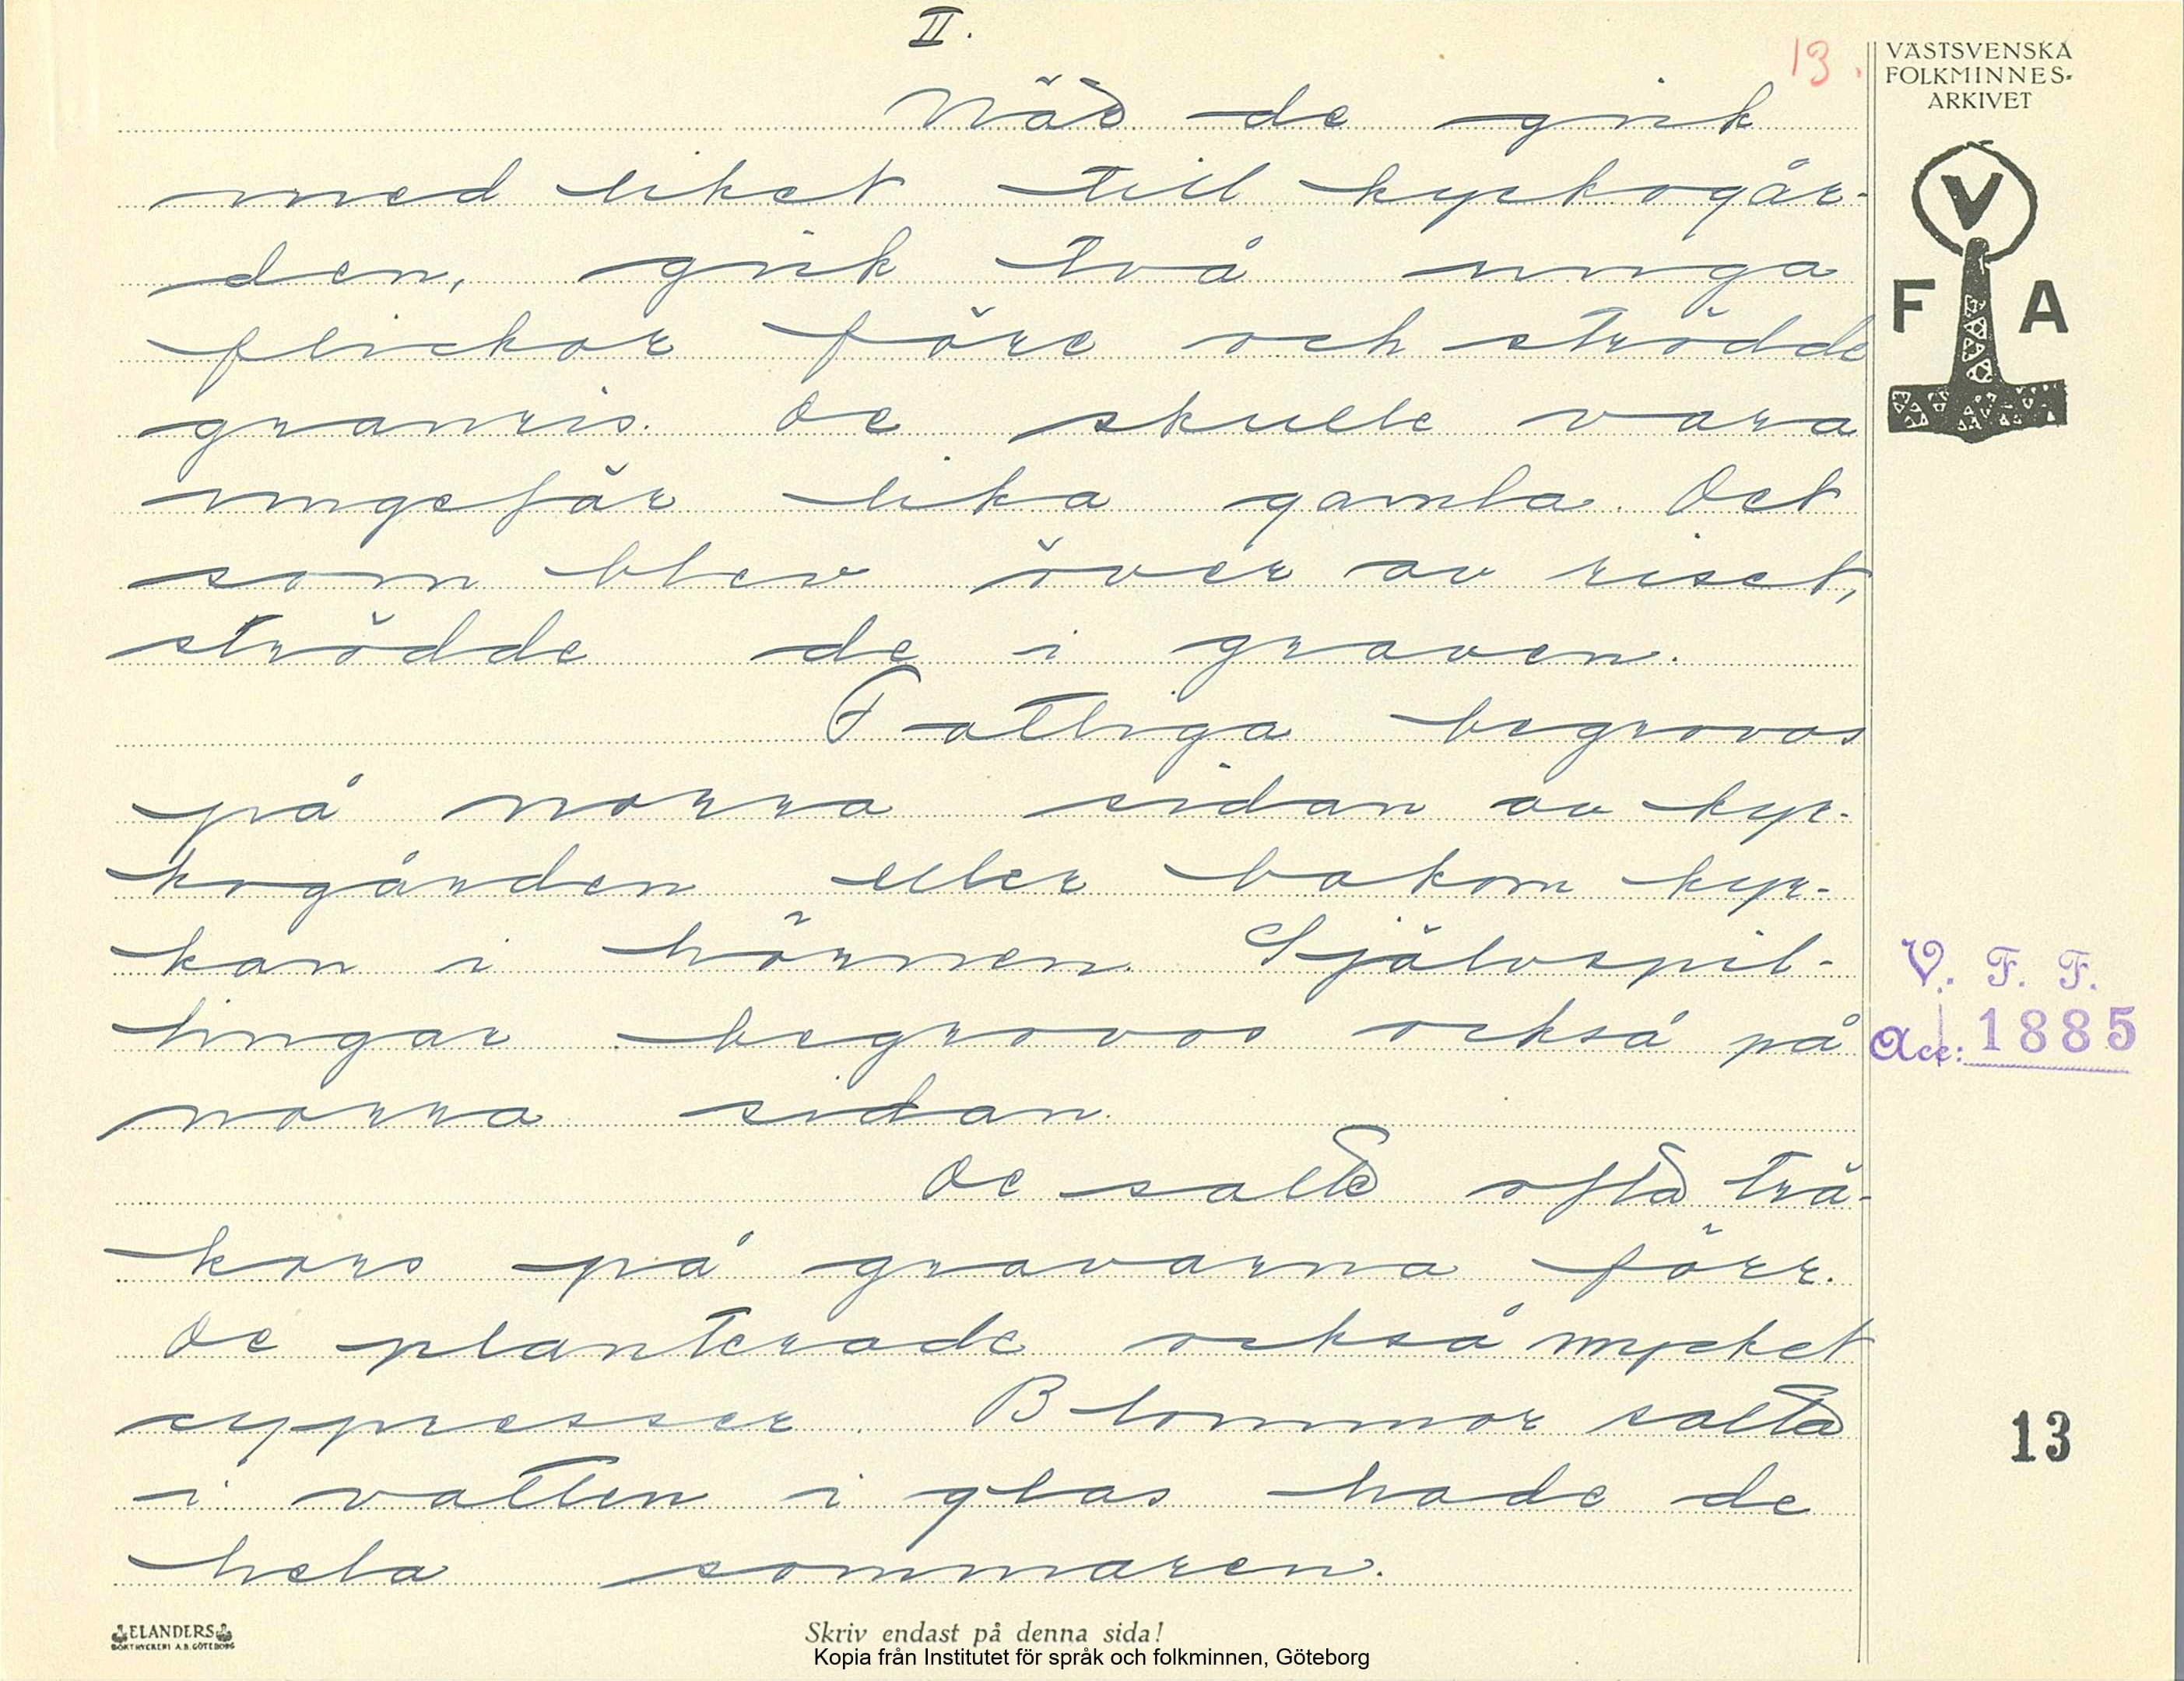 II.
13.
VÄSTSVENSKA
FOLKMINNES-
ARKIVET
När de gick
med liket till kyrkogår-
den, gick två unga
flickor före och strödde
granris. De skulle vara
ungefär lika gamla. Det
som blev över av riset,
strödde de i graven.
V
F A
Fattiga begrovos
på norra sidan av kyr-
kogården eller bakom kyr-
kan i hörnen. Självspil-
lingar begrovos också på
norra sidan.
V. F. F.
Acc: 1885
De satte ofta trä-
kors på gravarna förr.
De planterade också mycket
cypresser. Blommor satta
i vatten i glas hade de
hela sommaren.
13
ELANDERS
BOKTRYCKERI A.B. GÖTEBORG
Skriv endast på denna sida!
Kopia från Institutet för språk och folkminnen, Göteborg